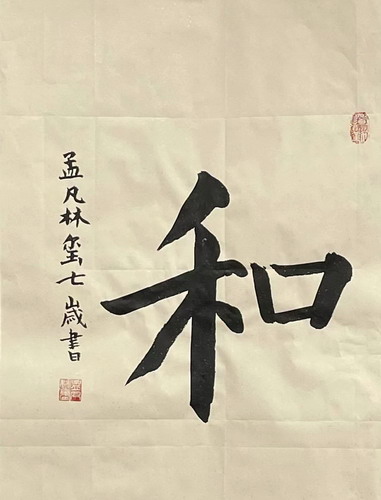 和
孟凡林玺七歲書